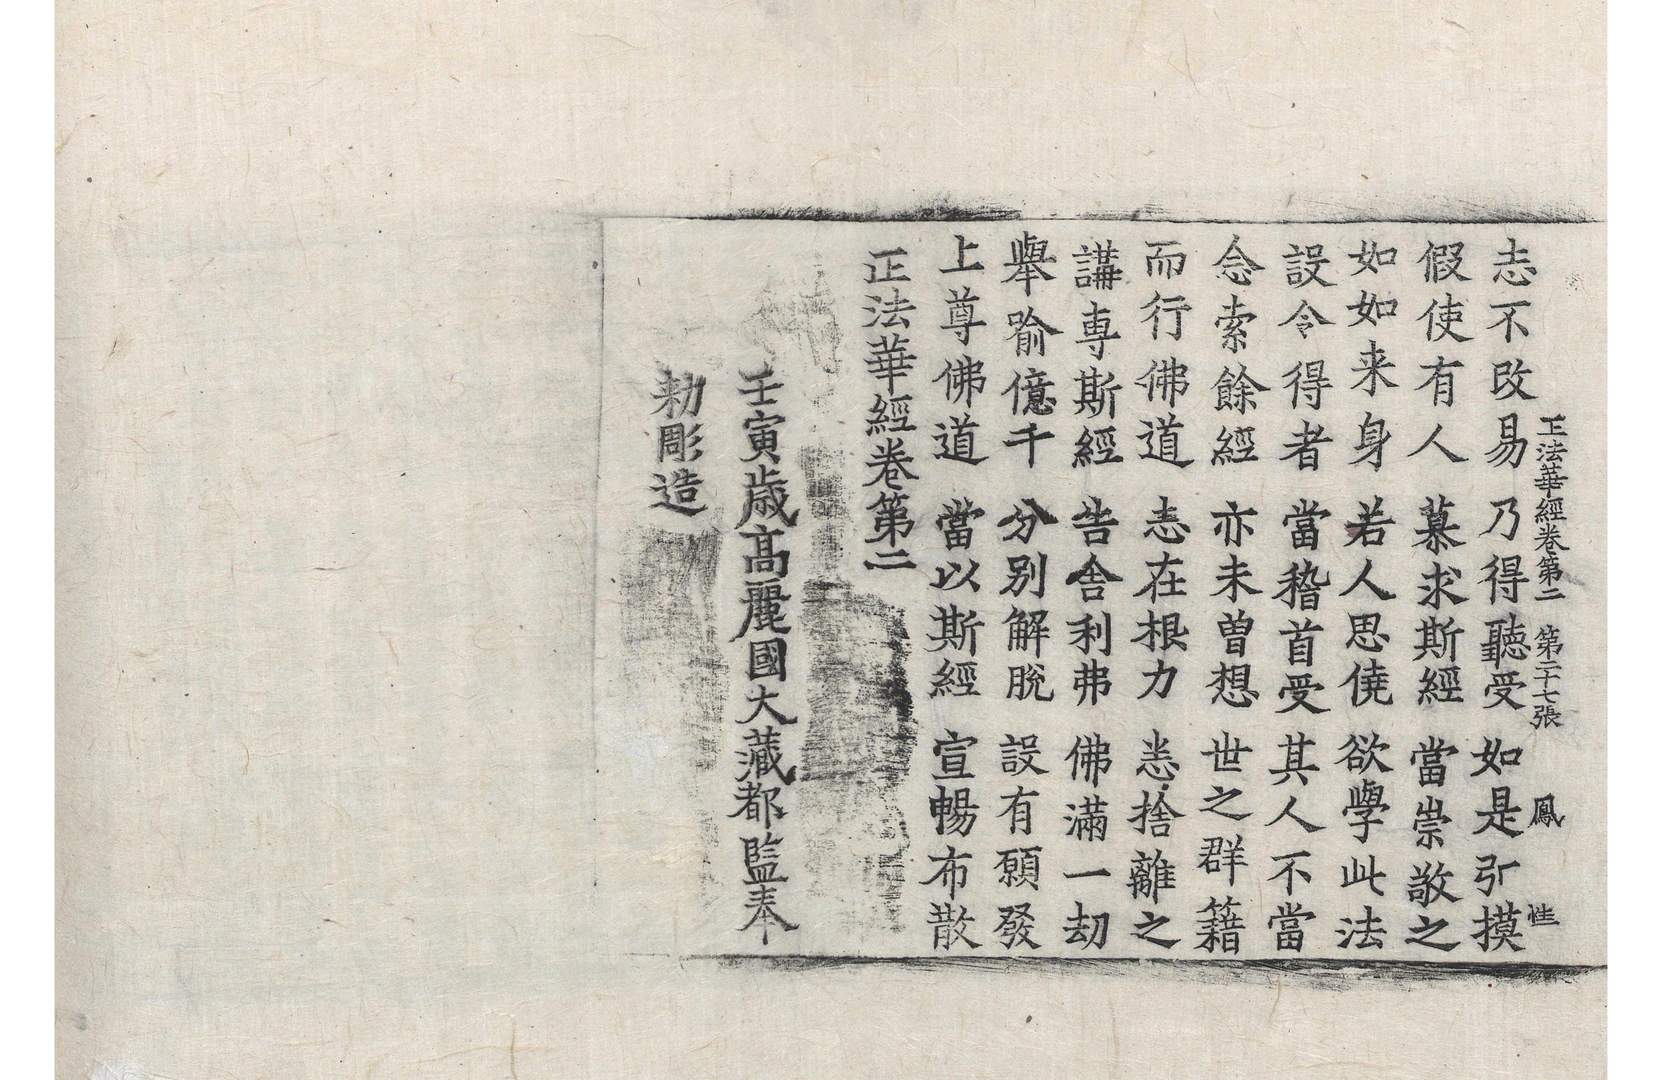 正法華經卷第二　第二十七張　鳳　性
志不改易　乃得聽受　如是引摸
假使有人　慕求斯經　當崇敬之
如如来身　若人思僥　欲學此法
設令得者　當稽首受　其人不當
念索餘經　亦未曽想　世之群籍
而行佛道　志在根力　悉捨離之
講專斯經　告舍利弗　佛滿一劫
舉喻億千　分別解脫　設有願發
上尊佛道　當以斯經　宣暢布散
正法華經卷第二
壬寅歳髙麗國大藏都監奉
勅彫造